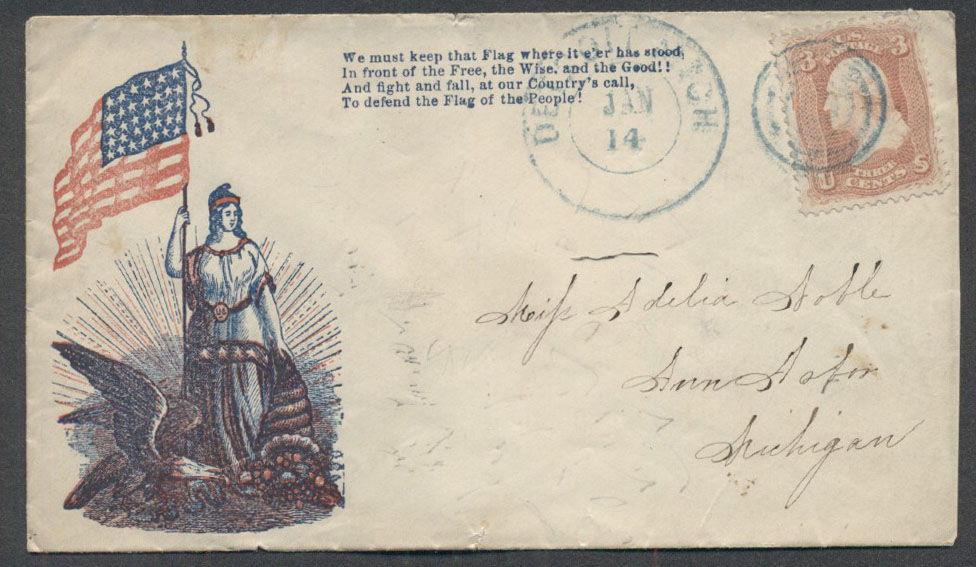 We must keep that Flag where it e'er has stood,
In front of the Free, the Wise, and the Good!!
And fight and fall, at our Country's call,
To defend the Flag of the People!
DETROIT MICH
JAN
14
3 U.S. 3
POSTAGE
U THREE S
CENTS
Miss Adelia Noble
Ann Arbor
Michigan